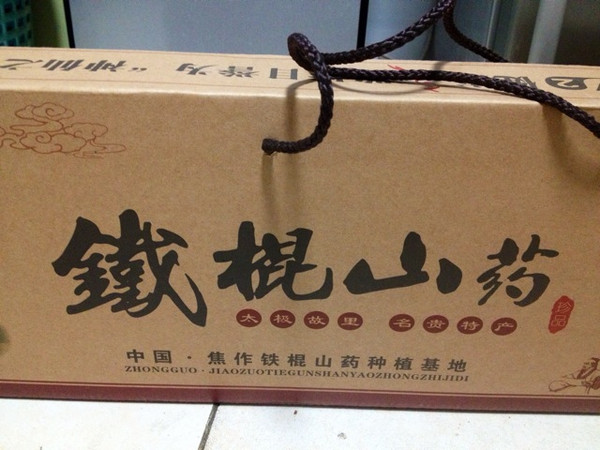 "神仙之
誉为
鐵棍山药
太极故里 名贵特产
珍品
中国·焦作铁棍山药种植基地
ZHONGGUO·JIAOZUOTIEGUNSHANYAOZHONGZHIJIDI